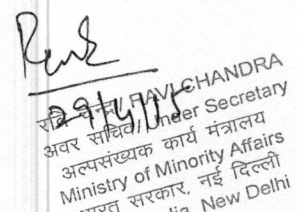 29/4/15
रवि चन्द्रा, RAVI CHANDRA
अवर सचिव, Under Secretary
अल्पसंख्यक कार्य मंत्रालय
Ministry of Minority Affairs
भारत सरकार, नई दिल्ली
New Delhi